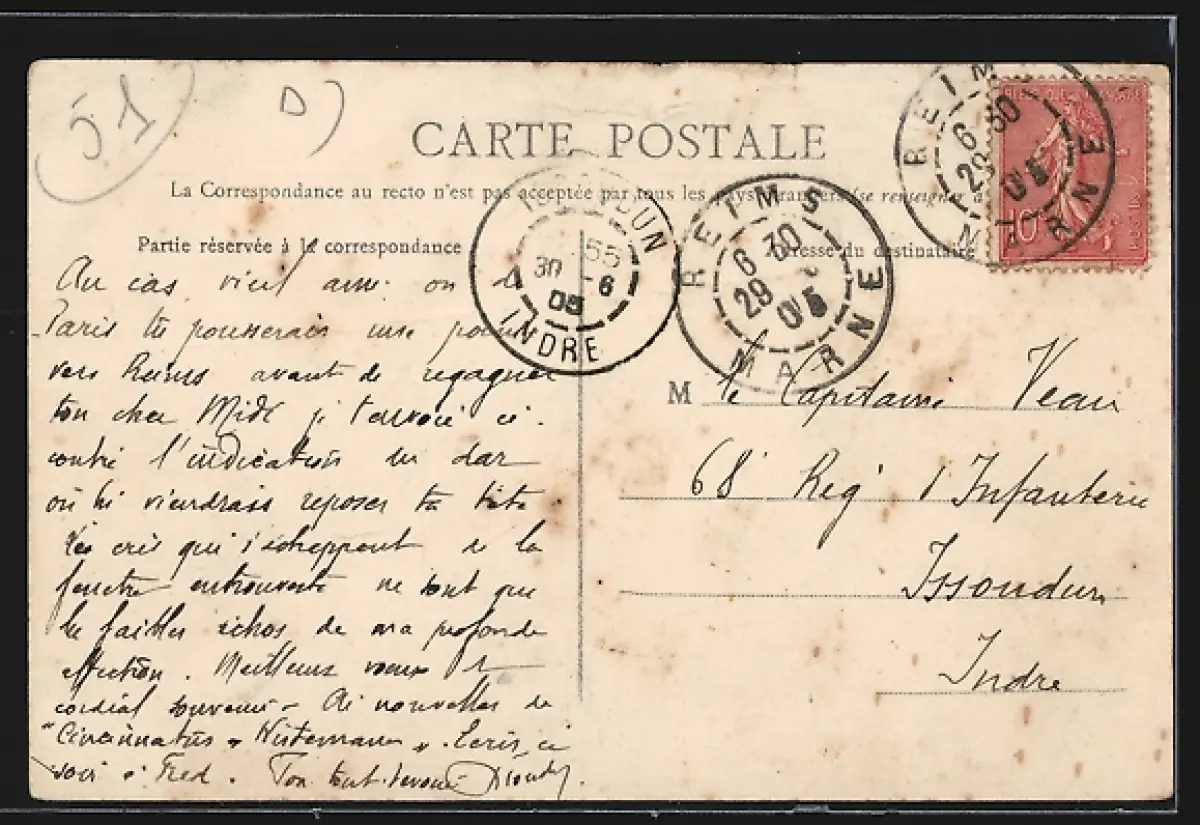 51
D)
CARTE POSTALE
La Correspondance au recto n'est pas acceptée par tous les pays étrangers (se renseigner à
Partie réservée à la correspondance
Adresse du destinataire
REIMS
6 30
29
05
MARNE
REIMS
6 30
29
05
MARNE
DUN
55
30 -6
05
INDRE
10
Au cas, vieil ami, où de
Paris tu pousserais une pointe
vers Reims avant de regagner
ton cher Midi j' t'envoie ci-
contre l'indication du
où tu viendrais reposer ta tête
Les cris qui s'échappent de la
fenêtre entrouverte ne sont que
les faibles échos de ma profonde
affection. Meilleurs vœux et
cordial souvenir - Ai nouvelles de
"Cincinnatus Ecris, ce
soir à Fred. Ton tout dévoué
M le Capitaine Veau
68 Reg d'Infanterie
Issoudun
Indre